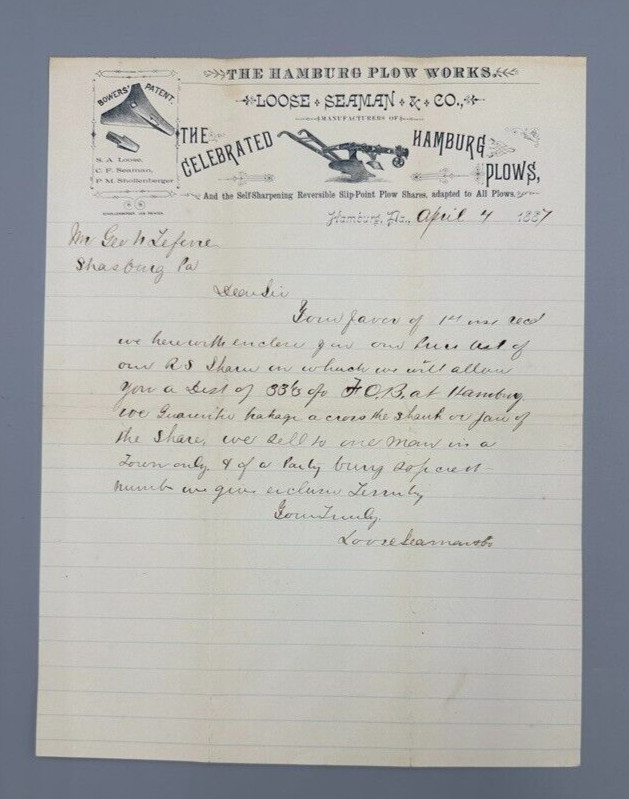 THE HAMBURG PLOW WORKS.
LOOSE SEAMAN & CO.,
MANUFACTURERS OF
BOWERS' PATENT.
S. A. Loose,
C. F. Seaman,
P. M. Shollenberger
THE CELEBRATED HAMBURG PLOWS,
And the Self-Sharpening Reversible Slip-Point Plow Shares, adapted to All Plows.
Hamburg, Pa., April 4 1887
Mr Geo N Lefevre
Strasburg Pa
Dear Sir
Your favor of 1st inst recd
we herewith enclose you our Price List of
our RS Share on which we will allow
you a Dist of 33⅓ % F.O.B. at Hamburg
we Guarantee brakage across the Shank or Jaw of
the Share, we sell to one man in a
Town only & if a Party buys
number we give exclusive Territory
Yours Truly
Loose Seaman & Co